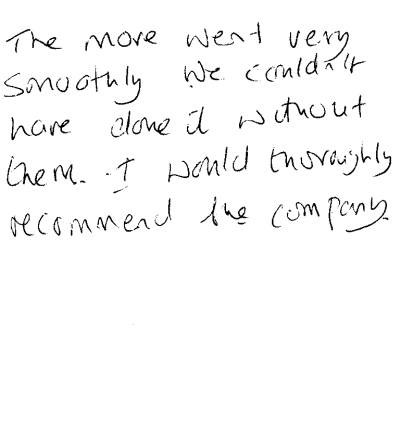 The move went very
smoothly We couldn't
have done it without
them. I would thoroughly
recommend the company.